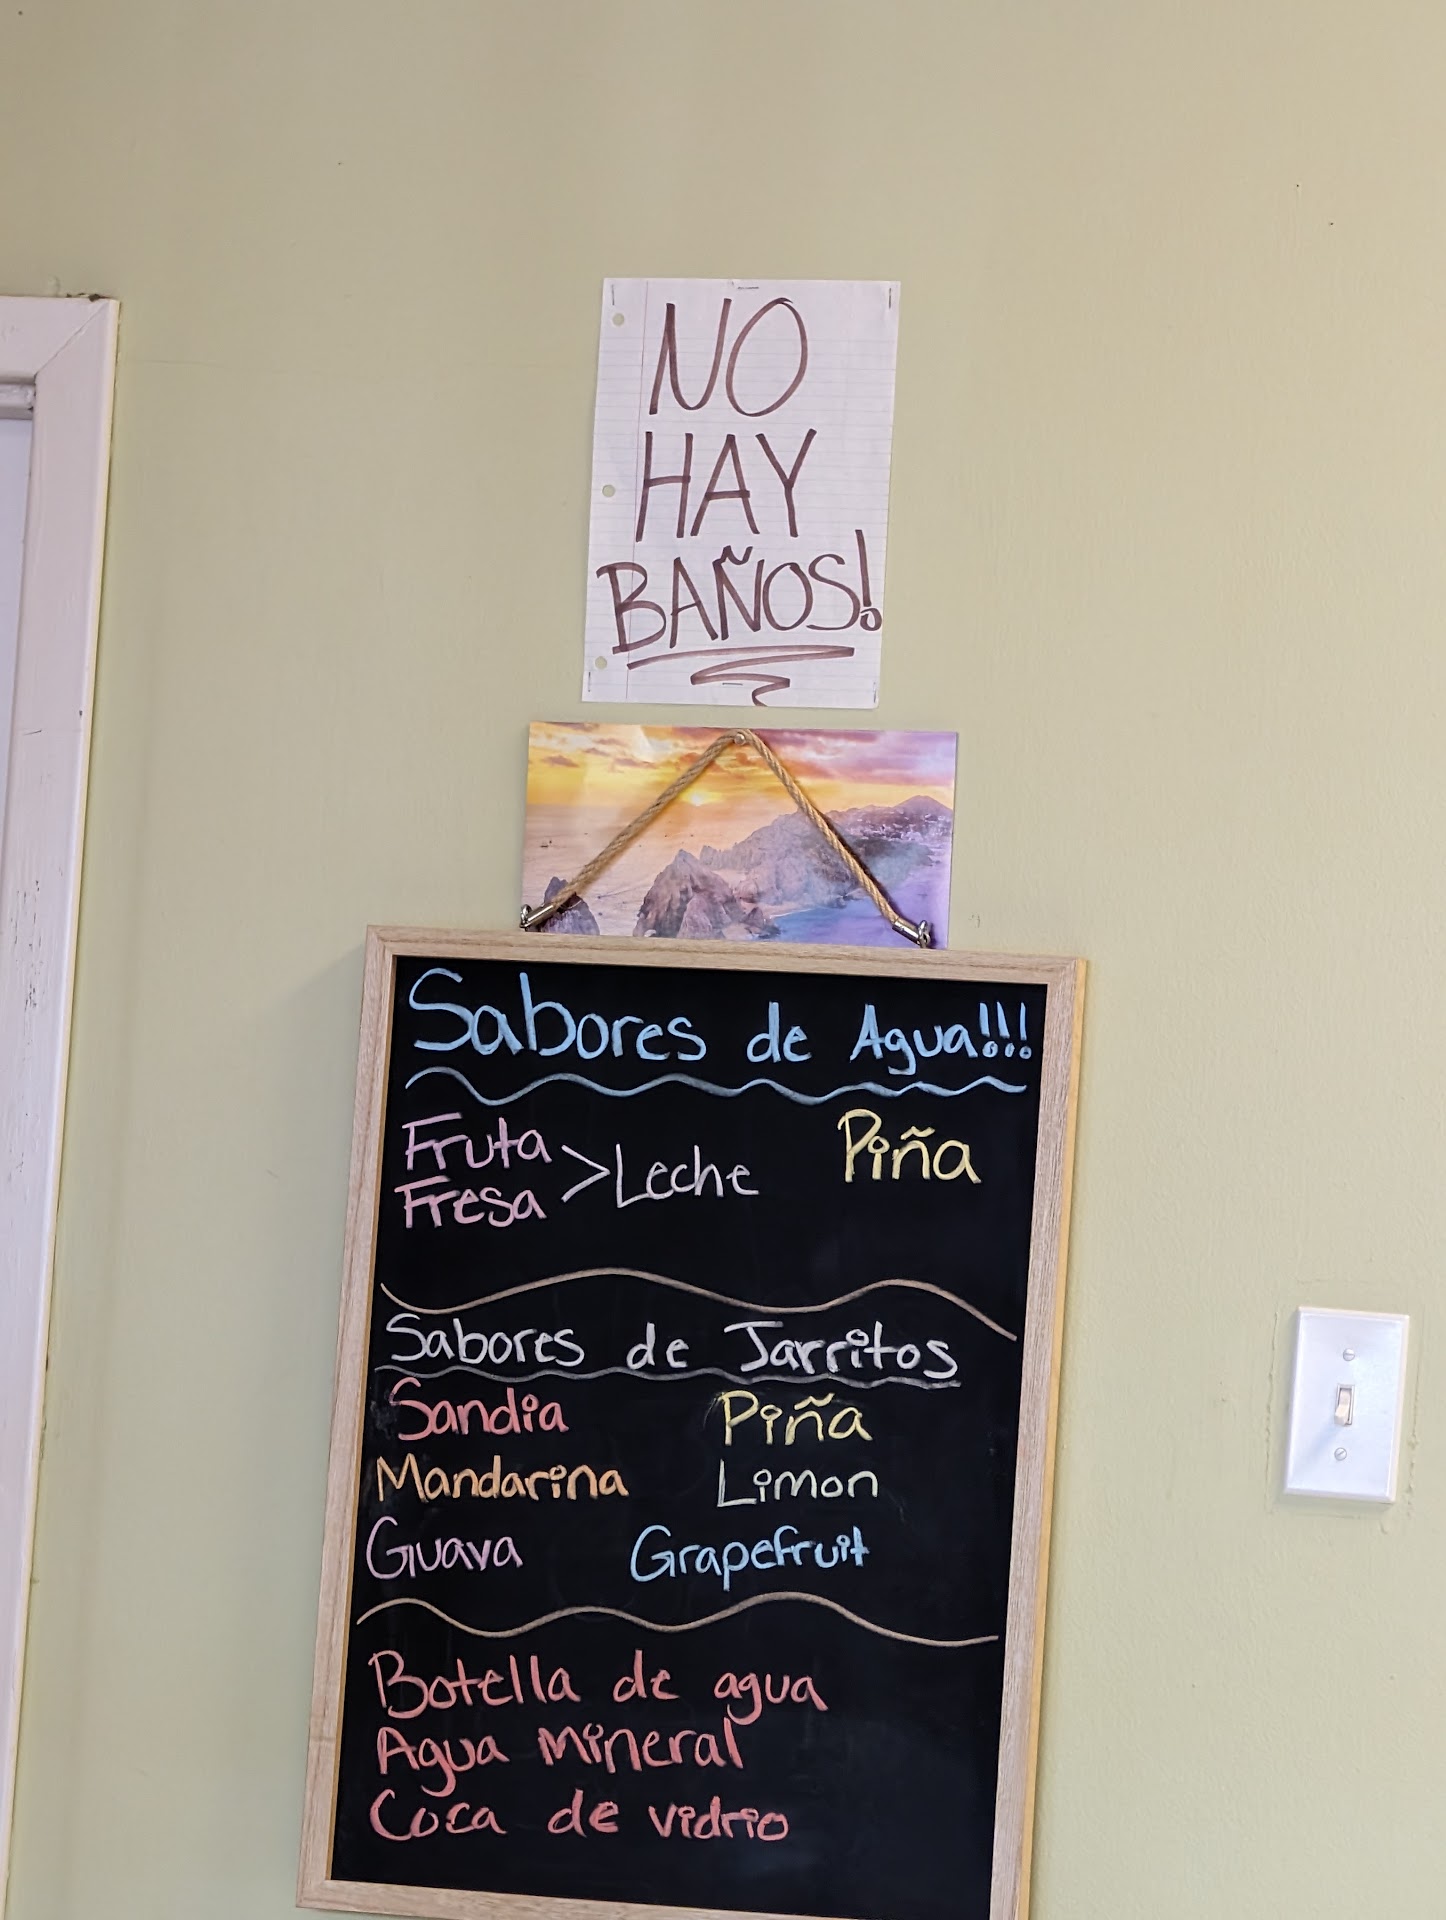 NO
HAY
BAÑOS!
Sabores de Agua!!!
Fruta
Fresa >Leche
Piña
Sabores de Jarritos
Sandia Piña
Mandarina Limon
Guava Grapefruit
Botella de agua
Agua Mineral
Coca de vidrio